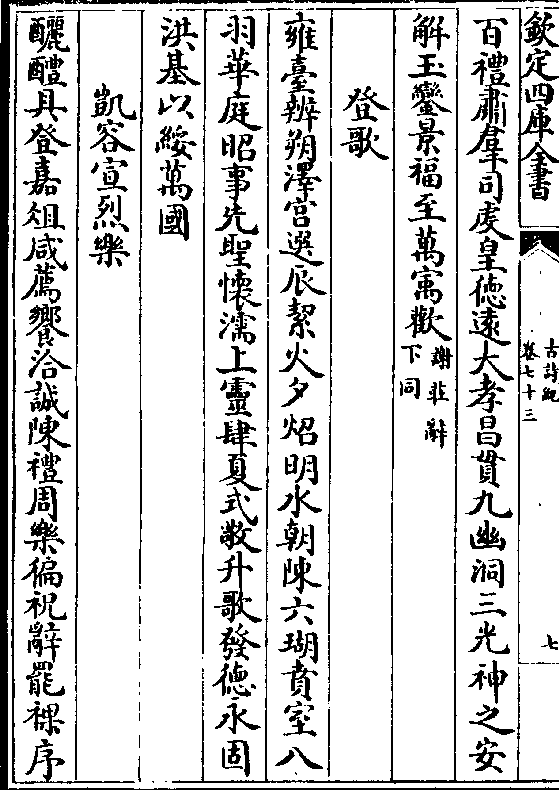 欽定四庫全書
古詩紀
卷七十三
七
百禮肅羣司䖍皇德遠大孝昌貫九幽洞三光神之安
解玉鑾景福至萬寓歡謝莊辭
下同
登歌
雍臺辨朔澤宫選辰絜火夕炤明水朝陳六瑚賁室八
羽華庭昭事先聖懷濡上靈肆夏式敬升歌發德永固
洪基以綏萬國
凱容宣烈樂
釃醴具登嘉俎咸薦饗洽誠陳禮周樂徧祝辭罷祼序